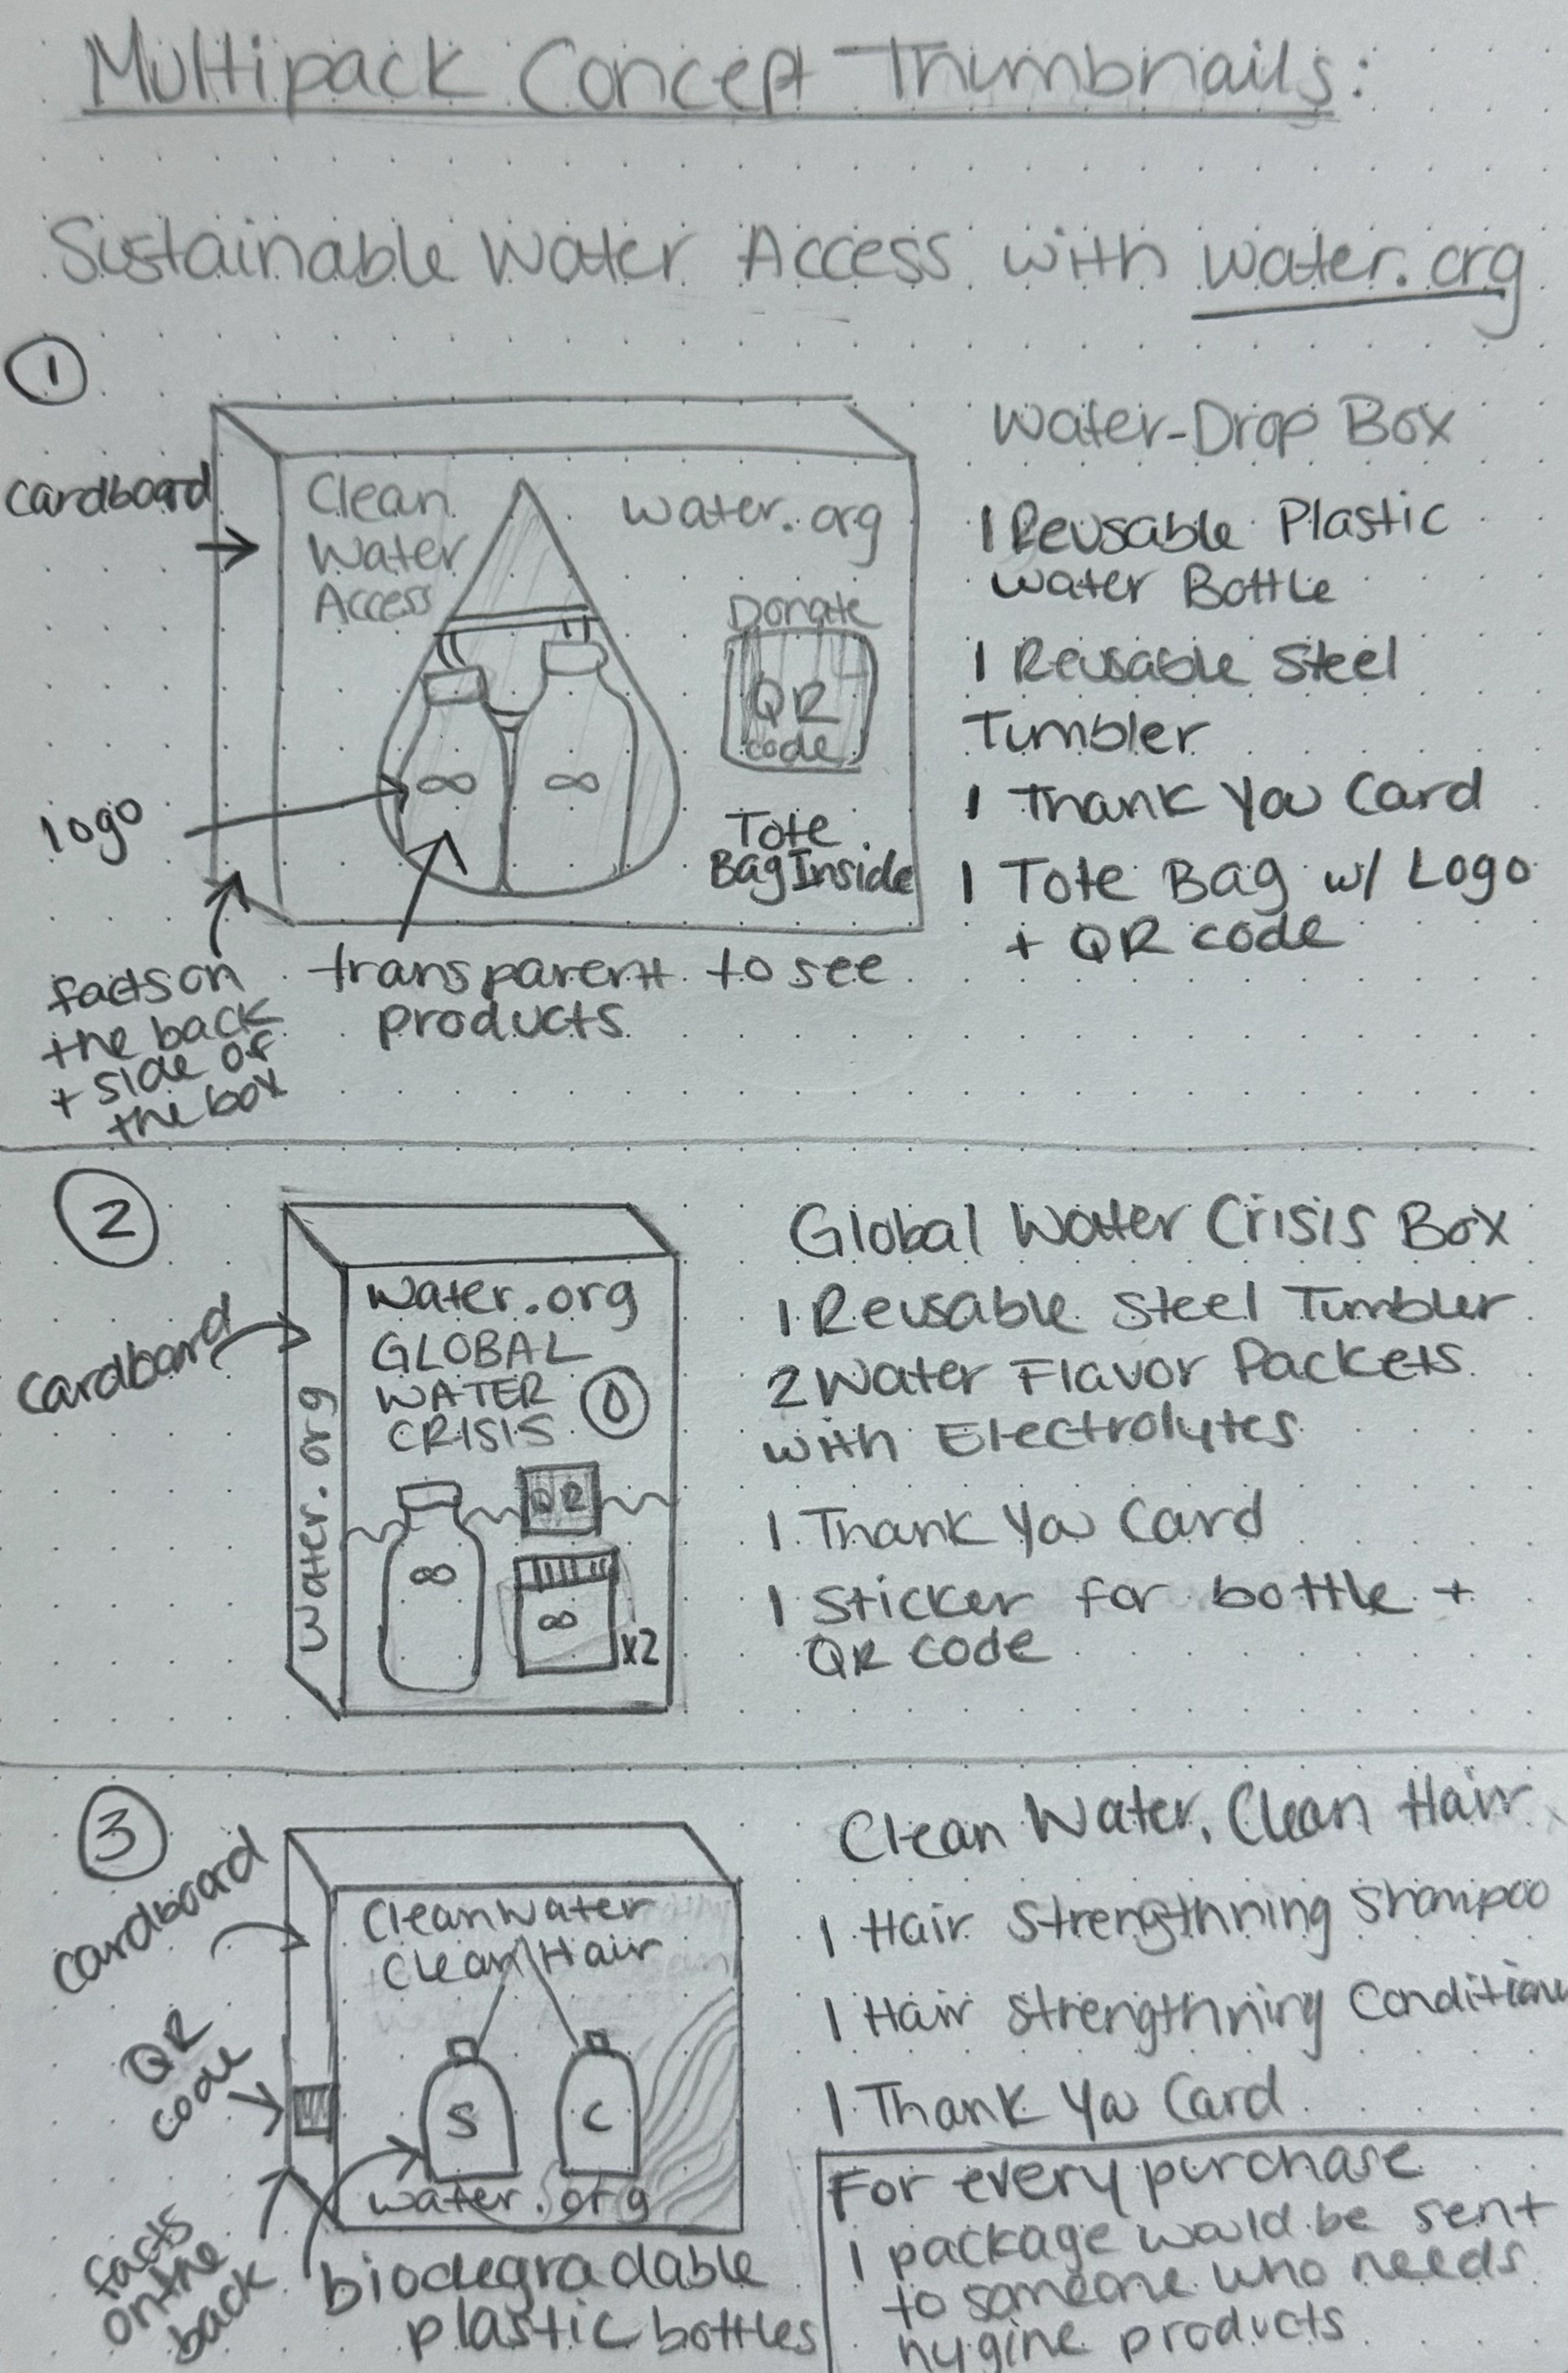 Multipack Concept Thumbnails:
Sustainable Water Access with water.org
1
cardboard
logo
facts on
the back
+ side of
the box
Clean
Water
Access
water.org
Donate
QR
code
Tote
Bag Inside
∞ ∞
transparent to see
products
Water-Drop Box
1 Reusable Plastic
water Bottle
1 Reusable Steel
Tumbler
1 Thank You Card
1 Tote Bag w/ Logo
+ QR code
2
cardboard
water.org
water.org
GLOBAL
WATER
CRISIS
QR
∞
∞
x2
Global Water Crisis Box
1 Reusable Steel Tumbler
2 Water Flavor Packets
with Electrolytes
1 Thank You Card
1 Sticker for bottle +
QR code
3
cardboard
QR
code
facts
on the
back
Clean Water
Clean Hair
S C
water.org
biodegradable
plastic bottles
Clean Water, Clean Hair
1 Hair Strengthning Shampoo
1 Hair Strengthning Condition
1 Thank You Card
For every purchase
1 package would be sent
to someone who needs
hygine products